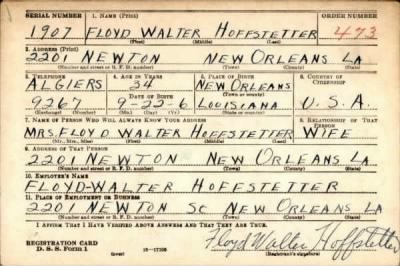 SERIAL NUMBER 1. NAME (Print) ORDER NUMBER
1907 FLOYD WALTER HOFFSTETTER 473
(First) (Middle) (Last)
2. ADDRESS (Print)
2201 NEWTON NEW ORLEANS LA
(Number and street or R. F. D. number) (Town) (County) (State)
3. TELEPHONE 4. AGE IN YEARS 5. PLACE OF BIRTH 6. COUNTRY OF CITIZENSHIP
ALGIERS 34 NEW ORLEANS
(Town or county)
DATE OF BIRTH
9267 9-22-6 LOUISIANA U.S.A.
(Exchange) (Number) (Mo.) (Day) (Yr.) (State or country)
7. NAME OF PERSON WHO WILL ALWAYS KNOW YOUR ADDRESS 8. RELATIONSHIP OF THAT PERSON
MRS. FLOYD WALTER HOFFSTETTER WIFE
(Mr., Mrs., Miss) (First) (Middle) (Last)
9. ADDRESS OF THAT PERSON
2201 NEWTON NEW ORLEANS LA.
(Number and street or R. F. D. number) (Town) (County) (State)
10. EMPLOYER'S NAME
FLOYD-WALTER HOFFSTETTER
11. PLACE OF EMPLOYMENT OR BUSINESS
2201 NEWTON NEW ORLEANS LA
(Number and street or R. F. D. number) (Town) (County) (State)
I AFFIRM THAT I HAVE VERIFIED ABOVE ANSWERS AND THAT THEY ARE TRUE.
Floyd Walter Hoffstetter
REGISTRATION CARD
D. S. S. Form 1 (over) (Registrant's signature)